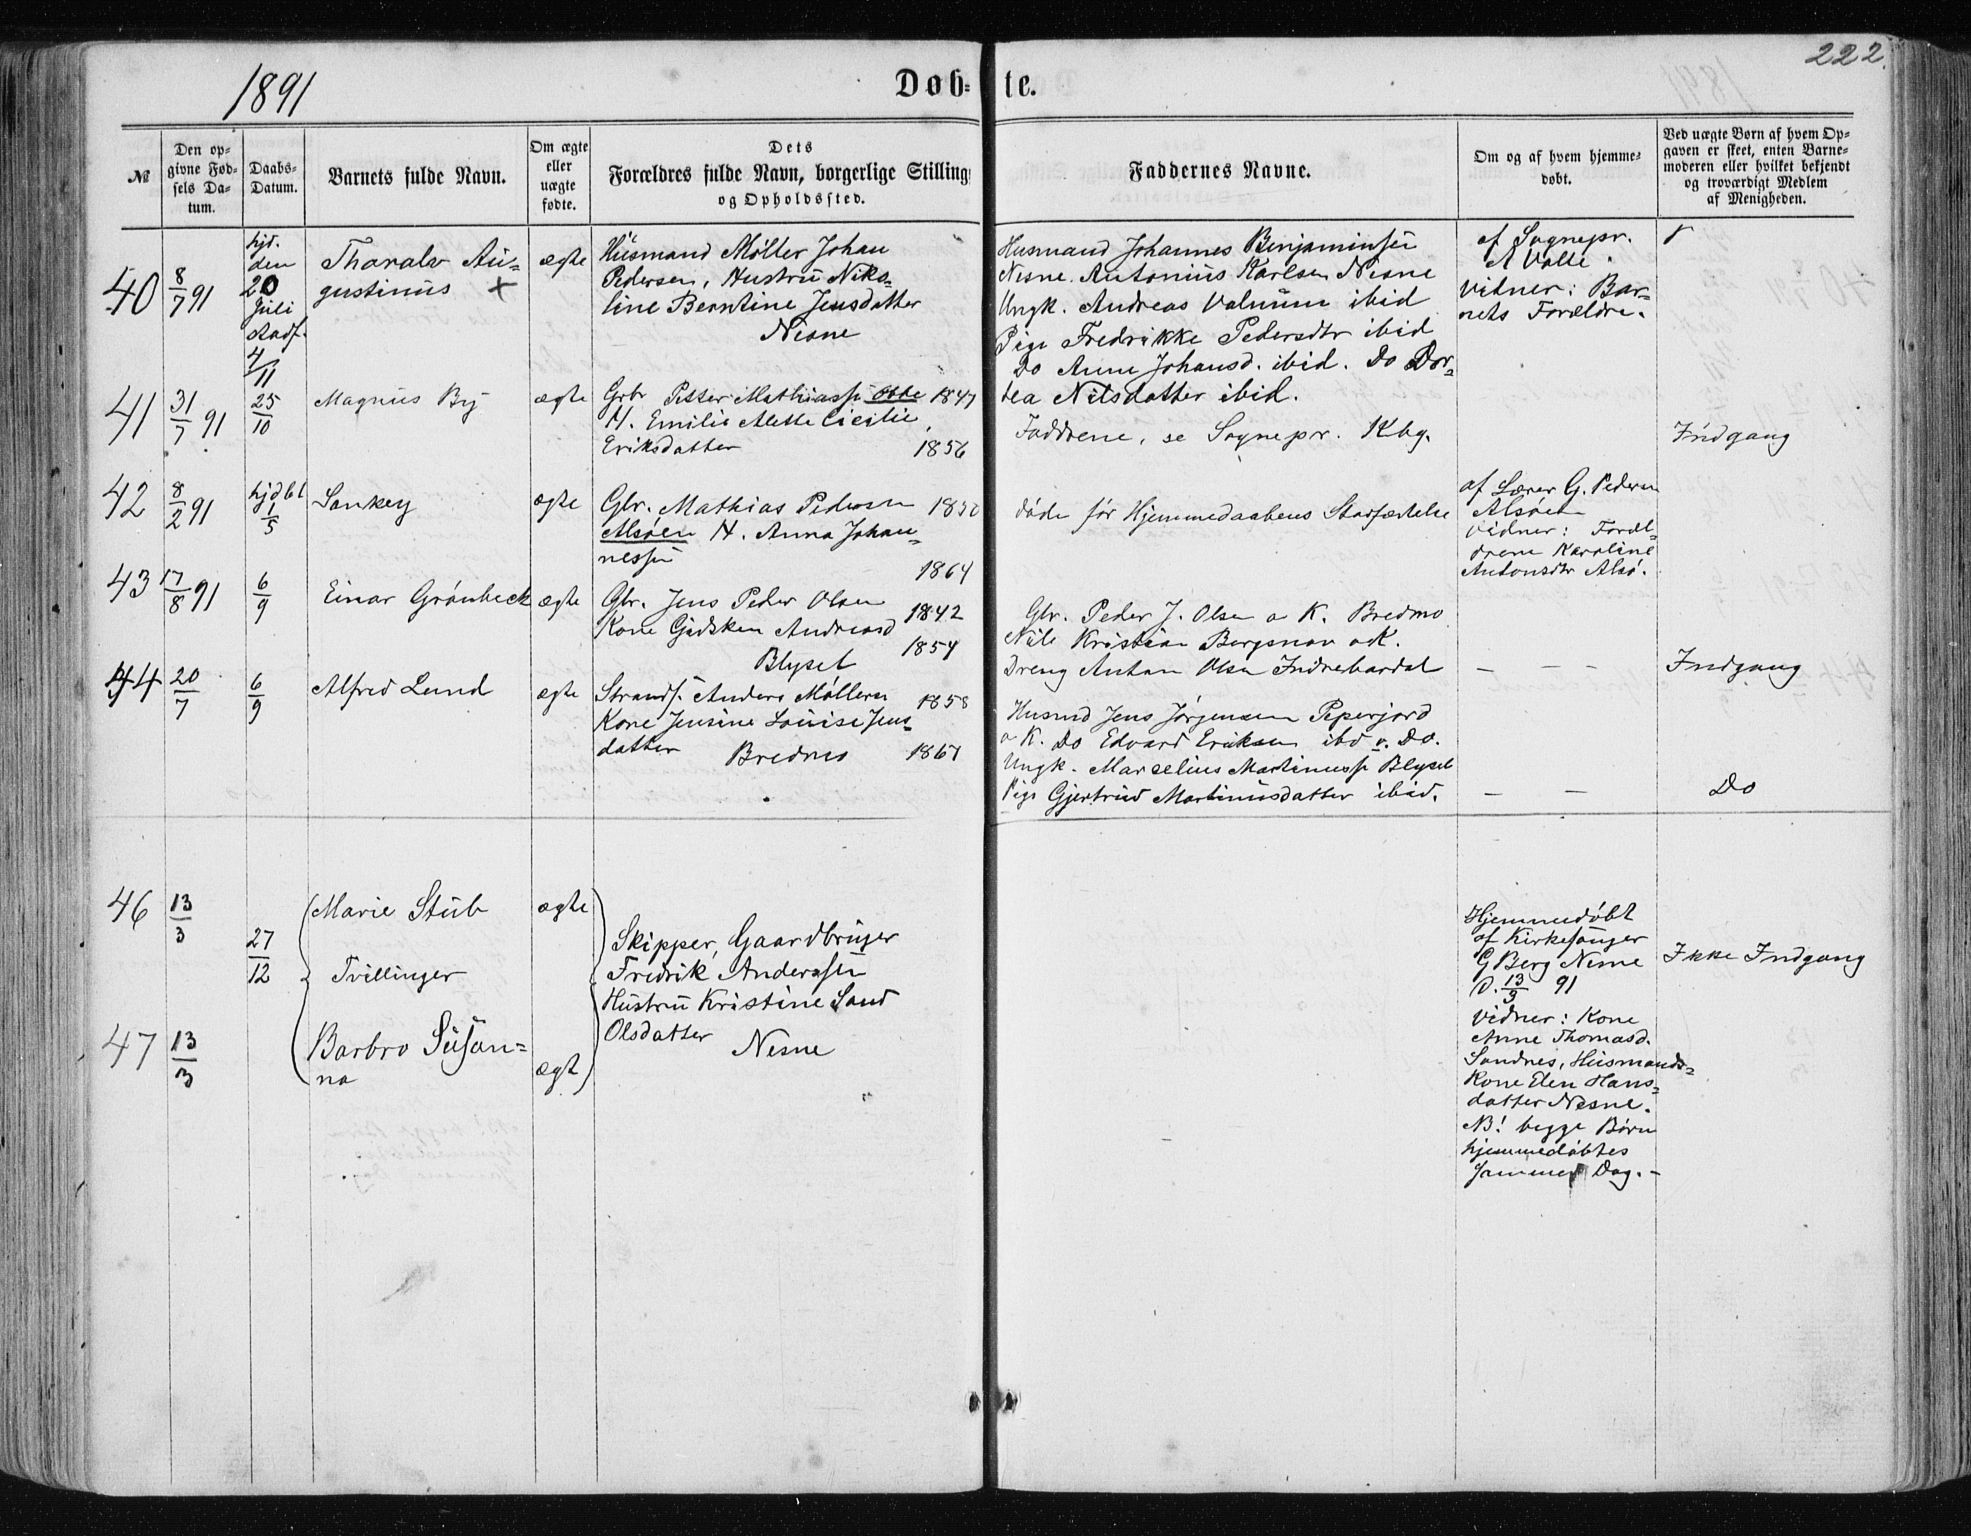 222.
1891
Døb= te.
№
Den op-
givne Fød-
sels Da-
tum.
Daabs-
Datum.
Barnets fulde Navn.
Om ægte
eller
uægte
fødte.
Dets
Forældres fulde Navn, borgerlige Stilling
og Opholdssted.
Faddernes Navne.
Om og af hvem hjemme-
døbt.
Ved uægte Børn af hvem Op-
gaven er skeet, enten Barne-
moderen eller hvilket bekjendt
og troværdigt Medlem
af Menigheden.
40
8/7 91
hjd.
den
20
Juli
stadf.
4/11
Tharalv Au=
gustinus ×
ægte
Husmand Møller Johan
Pedersen, Hustru Niko=
line Berntine Jensdatter
Nesne
Husmand Johannes Benjaminsen
Nesne. Antonius Karlsen Nesne
Ungk. Andreas Valnum ibid
Pige Fredrikke Pedersdtr ibid
Do Anne Johansd. ibid. Do Dor=
tea Nilsdatter ibid.
af Sognepr.
A Volle.
Vidner: Bar=
nets Forældre.
41
31/7 91
25/10
Magnus By
ægte
Grbr Petter Mathiass 1847
H. Emilie Mette Cicilie
Eriksdatter 1856
Faddrene, se Sognepr. Kbg.
Indgang
42
8/2 91
hjdbt
1/5
Sankey
ægte
Gbr. Mathias Pedersen 1850
Alsøen H. Anna Johan=
nessen
1864
døde før Hjemmedaabens Stadfæstelse
af Lærer G. Pedersen
Alsøen
Vidner: Foræl=
drene Karoline
Antonsdtr Alsø.
43
17/8 91
6/9
Einar Grønbeck
ægte
Gbr. Jens Peder Olsen 1842
Kone Gjidsken Andreasd 1854
Blyset
Gbr. Peder J. Olsen o K. Bredmo
Nils Kristian Bergsnov o K.
Dreng Anton Olsen Indrebardal
— — —
Indgang
44
20/7
6/9
Alfred Lund
ægte
Strands. Anders Møllers 1858
Kone Jensine Louise Jens=
datter Brednes 1867
Husmd Jens Jørgensen Peperjord
o K. Do Edvard Eriksen ibd o. Do.
Ungk. Marselius Martinuss Blyset
Pige Gjertrud Martinusdatter ibid.
— —
Do
46
13/3
27/12
Marie Stub
ægte
Tvillinger
Skipper, Gaardbruger
Fredrik Anderssen
Hustru Kristine Sand
Olsdatter
Nesne
47
13/3
Barbro Susan=
na
ægte
Hjemmedøbt
af Kirkesanger
G Berg Nesne
D. 13/3 91
Vidner: Kone
Anne Thomasd.
Sandnes, Husmands=
Kone Elen Hans=
datter Nesne.
NB! begge Børn
hjemmedøbtes
samme Dag. —
Ikke Indgang